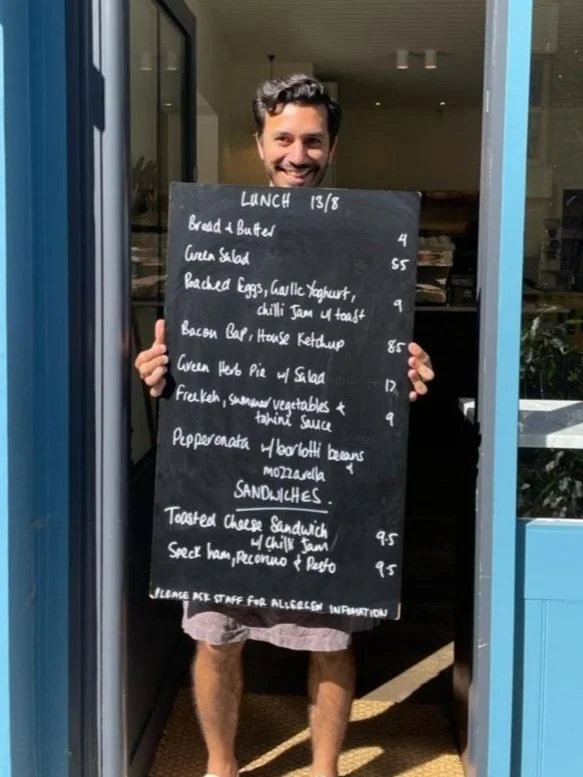 LUNCH 13/8
Bread & Butter 4
Green Salad 5.5
Poached Eggs, Garlic Yoghurt,
chilli Jam w/ toast 9
Bacon Bap, House Ketchup 8.5
Green Herb Pie w/ Salad 12
Freekeh, summer vegetables &
tahini sauce 9
Pepperonata w/ borlotti beans
& mozzarella
SANDWICHES.
Toasted Cheese Sandwich
w/ Chilli Jam 9.5
Speck ham, Pecorino & Pesto 9.5
PLEASE ASK STAFF FOR ALLERGEN INFOMATION